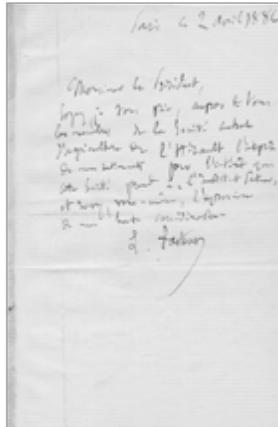 Paris le 2 avril 1886
Monsieur le Président,
Soyez, je vous prie, auprès de tous
les membres de la Société centrale
d'agriculture de l'Hérault l'interprète
de mes sentiments pour l'intérêt que
cette Société prend à l'Institut Pasteur,
et recevez, vous-même, l'expression
de ma haute considération
L. Pasteur